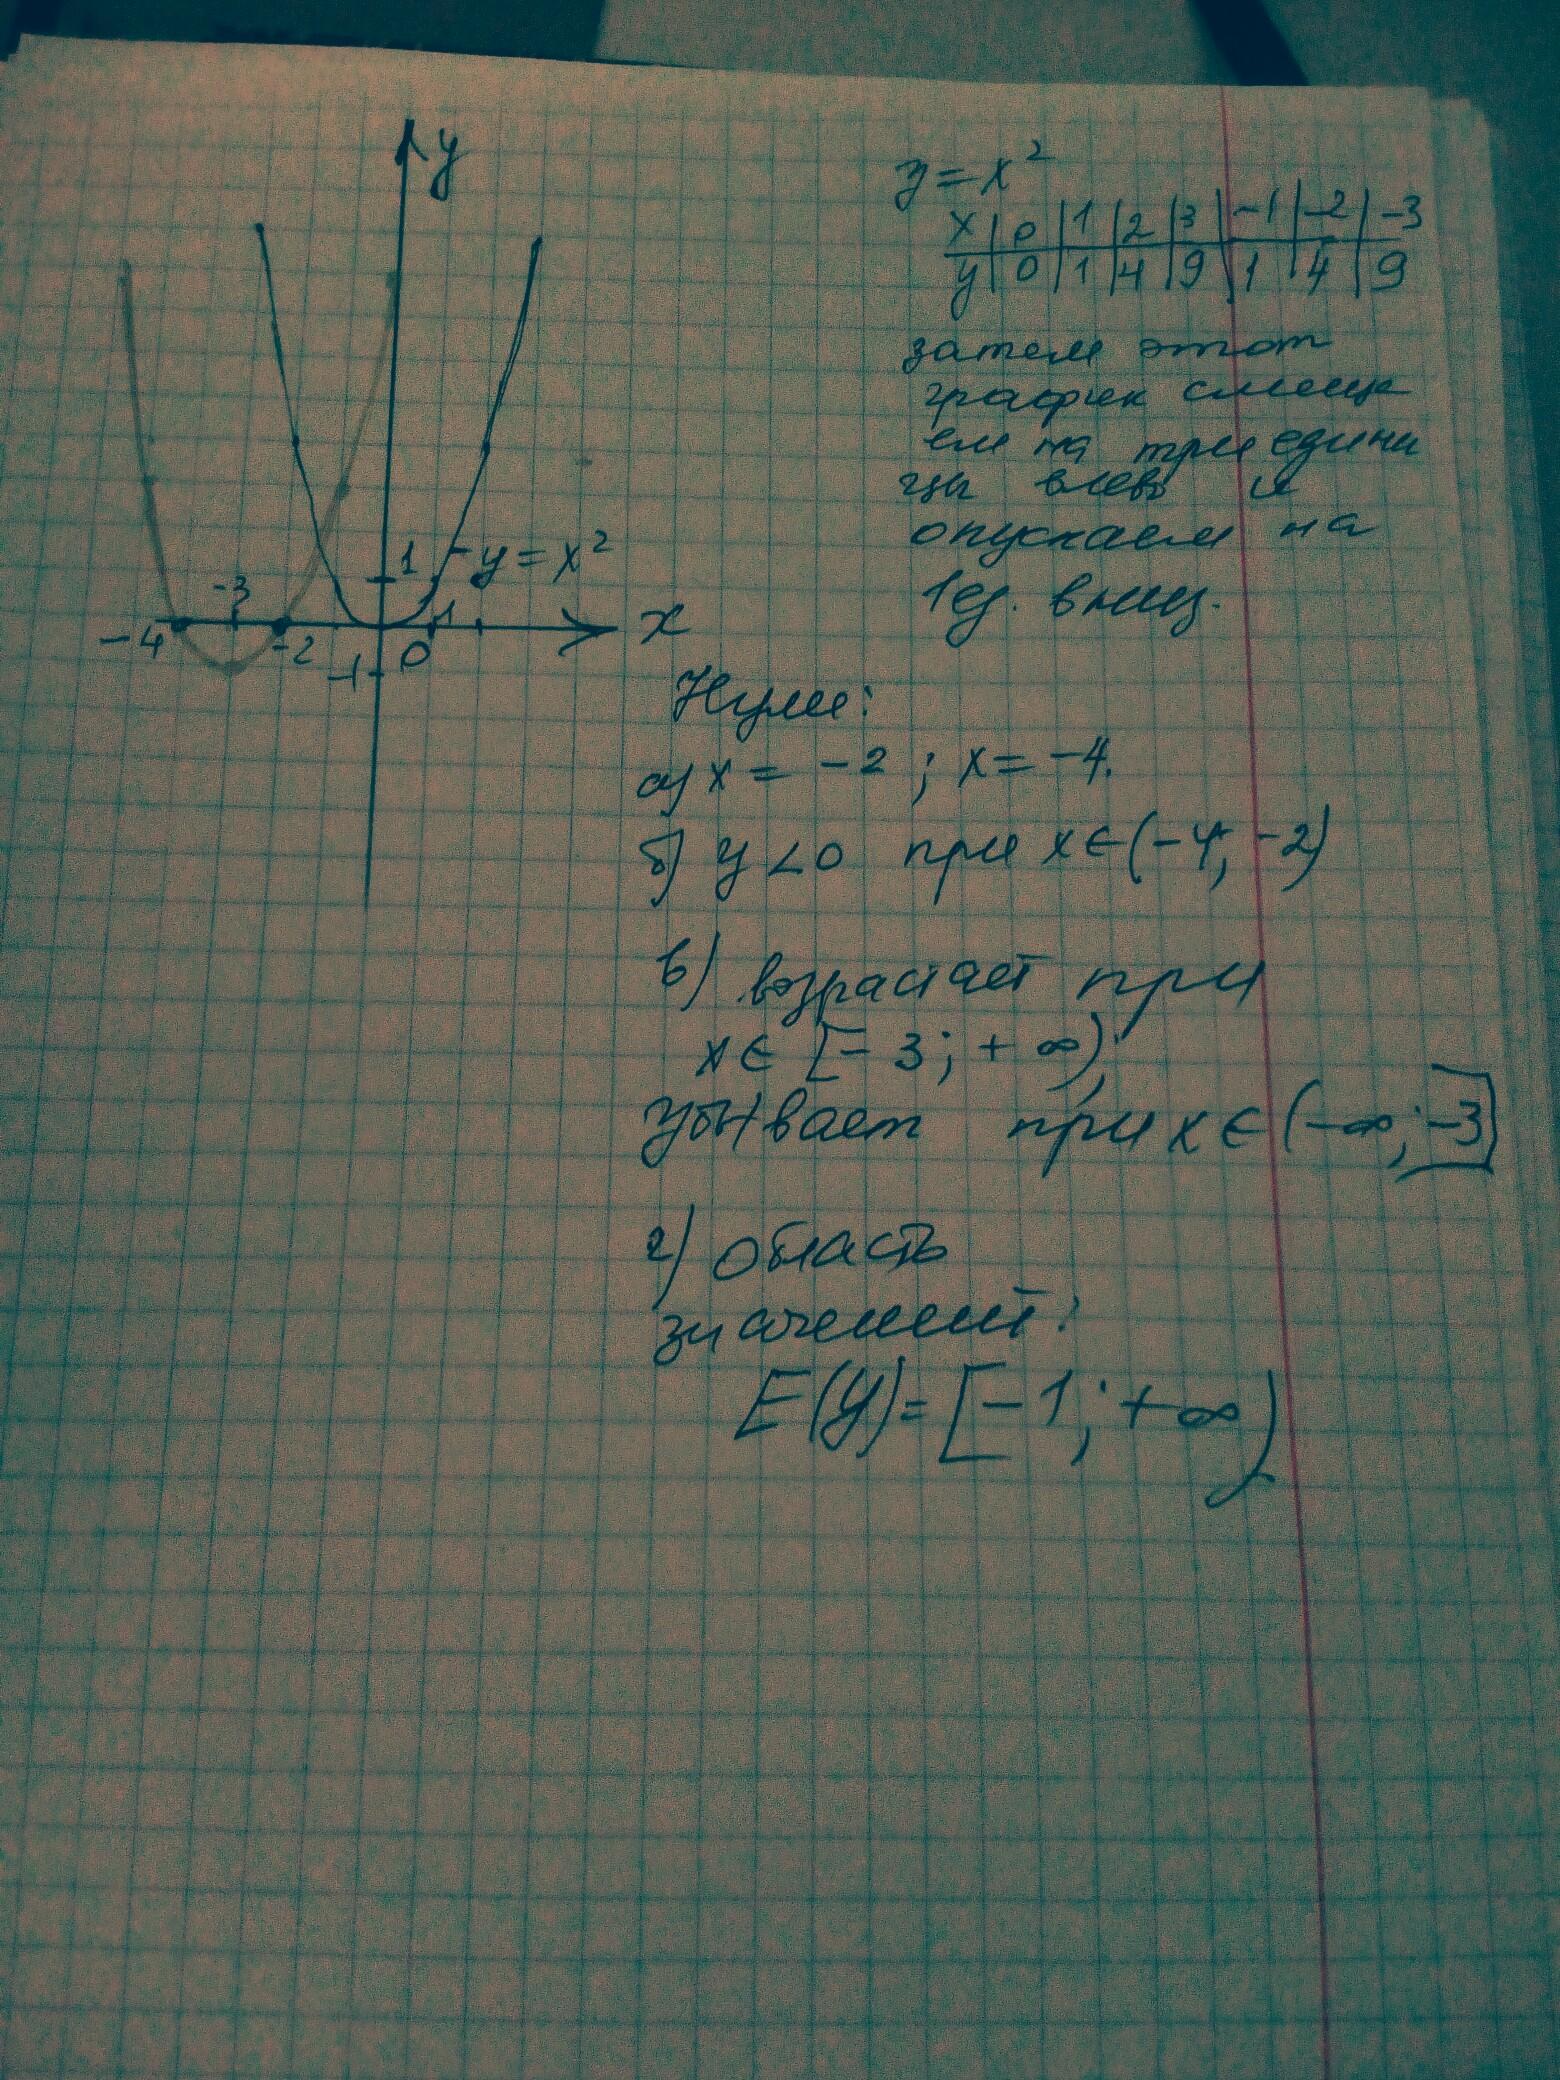 y
y = x²
1
-3
-4
-2
0
1
x
-1
y = x²
x | 0 | 1 | 2 | 3 | -1 | -2 | -3
y | 0 | 1 | 4 | 9 | 1 | 4 | 9
затем этот
график смеща
ем на три едини
цы влево и
опускаем на
1 ед. вниз.
Нули:
а) x = -2 ; x = -4.
б) y < 0 при x ∈ (-4; -2)
в) возрастает при
x ∈ [-3; +∞);
убывает при x ∈ (-∞; -3]
г) область
значений:
E(y) = [-1; +∞)